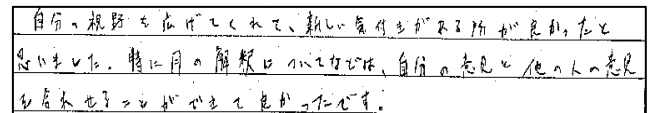 自分の視野を広げてくれて、新しい気付きがある所が良かったと
思いました。特に月の解釈についてなどは、自分の意見と他の人の意見
を合わせることができて良かったです。